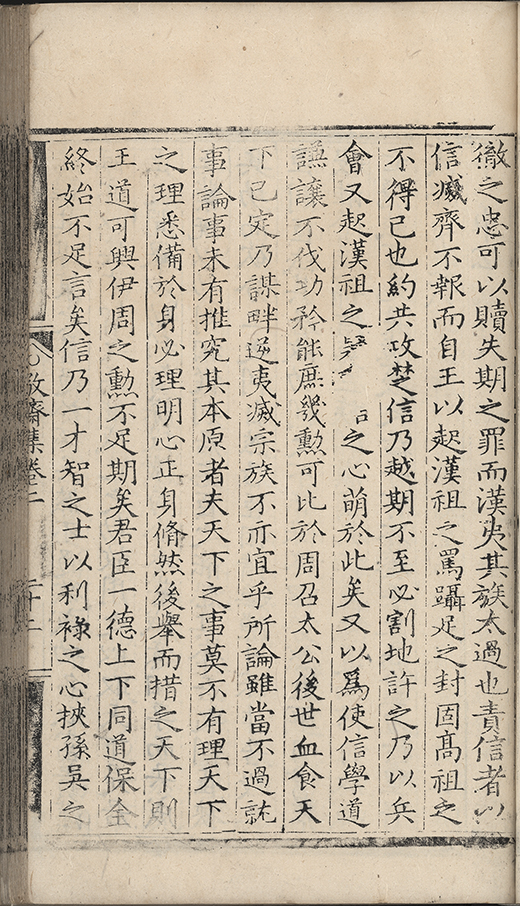 徹之忠可以贖失期之罪而漢夷其族太過也責信者以
信滅齊不報而自王以起漢祖之罵躡足之封固高祖之
不得已也約共攻楚信乃越期不至必割地許之乃以兵
會又起漢祖之之心萌於此矣又以爲使信學道
謙讓不伐功矜能庶幾勳可比於周召太公後世血食天
下已定乃謀畔逆夷滅宗族不亦宜乎所論雖當不過就
事論事未有推究其本原者夫天下之事莫不有理天下
之理悉備於身必理明心正身脩然後舉而措之天下則
王道可興伊周之勳不足期矣君臣一德上下同道保全
終始不足言矣信乃一才智之士以利祿之心挾孫吳之
敬齋集卷二 二十二